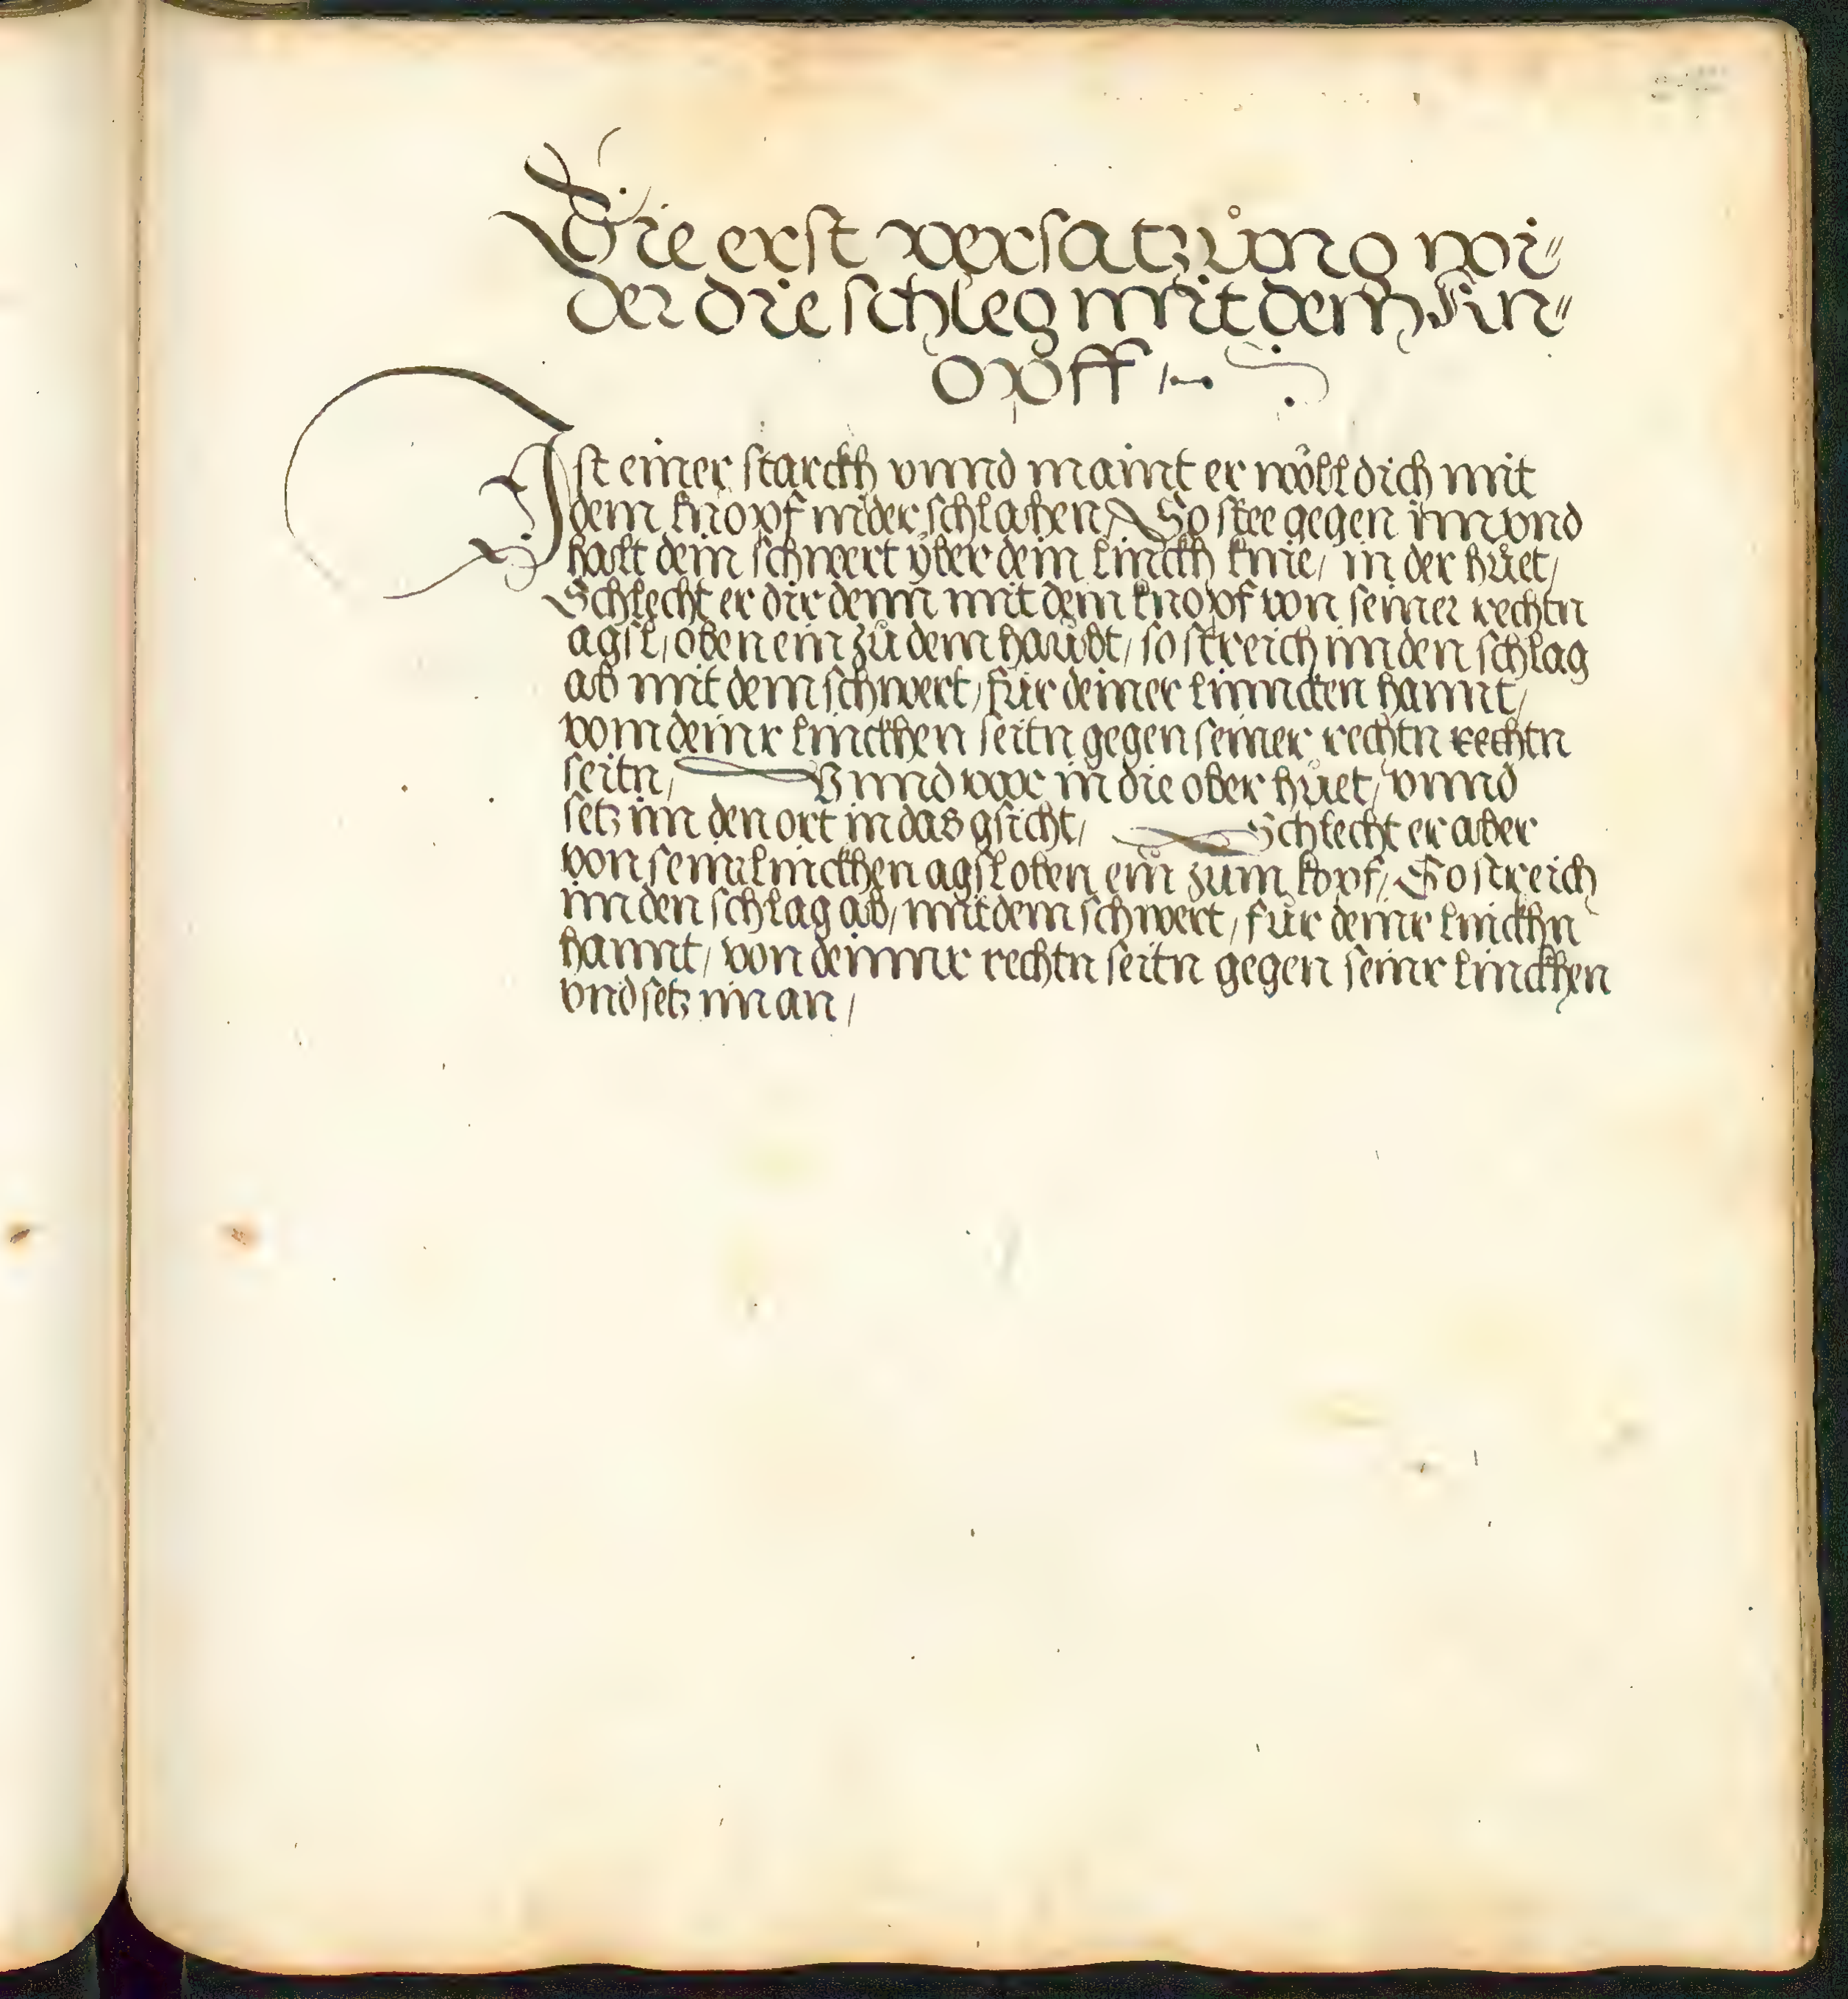 Die erst versatzŭng wi„
der die schleg mit dem kn„
opff
Ist einer starckh vnnd maint er wöll dich mit
dem knopf nider schlahen, So stee gegen im vnd
halt dein schwert über dein linckh knie, in der hŭet,
Schlecht er dir denn mit dem knopf von seiner rechtn
agsl, oben ein zŭ dem haŭbt, so streich im den schlag
ab mit dem schwert, für deiner linncken hannt,
vom deinr linckhen seitn gegen seiner rechtn rechtn
seitn, Vnnd var in die ober hŭet, vnnd
setz im den ort in das gsicht, Schlecht er aber
von seinr linckhen agsl oben ein zŭm kopf, So streich
im den schlag ab, mit dem schwert, für deinr linckhn
hannt, von deinnr rechtn seitn gegen seinr linckhen
vnd setz im an,